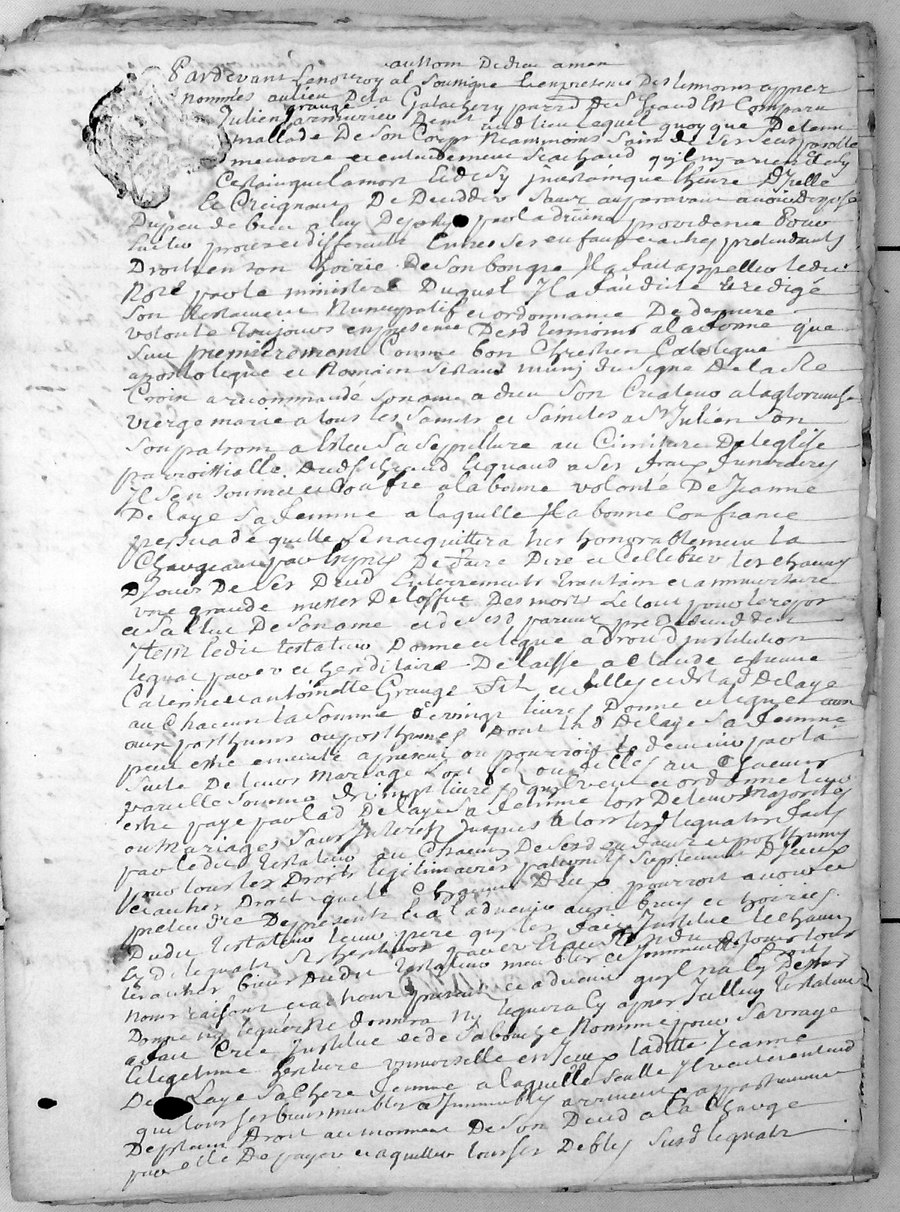 au Nom De dieu amen
Pardevant Le no.re royal Soussigné Et en presence Des temoins apres
nommes au lieu De la Galachery parr.sse De S.t Heand Est Comparu
Julien Grange Dem.t au d lieu Laquel quoy que Detenu
mallade De Son Corps Neammoins Sain de ses Sens parolle
memoire et entendement Scachand qu'il ny a rien de Sy
Certain que la mort et de Sy incertain que lheure D'Icelle
Et Creignant De Deceder Sans au paravant avoir disposé
Du peu de bien a luy Departy par la divine providence Pour
Eviter proces et differents Entre Ses enfants et autres pretendants
Droit en Son hoirie De Son bon gre Il a fait appeller ledit
No.re par le ministere Duquel Il a fait dicté et redigé
Son testament Nuncupatif et ordonnance De derniere
volonté toujours en presence Desd temoins a la forme que
Suit premierement Comme bon Chrestien Catolique
apostolique et Romain S'estant muny du Signe De la S.te
Croix a recommandé Son ame a dieu Son Createur a la glorieuse
vierge marie a tous les Saints et Saintes a S.t Julien Son
Son patron a Esleu Sa Sepulture au Cimitiere De l'eglise
parroissialle Dud S.t Heand Et quand a Ses fraix funeraires
Il S'en Soumet et Confie a la bonne volonté De Jeanne
Delaye Sa femme a laquelle Il a bonne Confiance
persuadé quelle S'en acquittera tres honorablement la
Chargeant par Expres De faire Dire et Cellebrer les Chacuns
D Jours De Ses Deced Enterrements trantain et anniversaire
une grande messe De loffice Des morts Le tout pour le repos
et Salut De Son ame et de Sesd parents predecedes
Item ledit testateur Donne et legue a Droit d'institution
legat paver et hereditaire Delaisse a Claude Estienne
Caterine et antoinette Grange fils et filles et de lad Delaye
au Chacun la Somme de vingt livres Donne et legue aux
aux posthums ou posthumes Dont lad Delaye Sa femme
peut estre enceinte a present ou pourroit le devenir par la
Suite De leurs mariage Soit fils ou filles au Chacun
pareille Somme de vingt livres qu'il veut et ordonne leur
estre payé par lad Delaye Sa femme lors De leurs majorites
ou mariages Sans Interest Jusques a lors lesd legats faits
par ledit testateur au Chacun De Sesd enfants et posthumes
pour tous les Droits legitimaires paternels Suplement D'Iceux
et autres Droits que le Chacun D'eux pourroit avoir et
pretendre De present et a ladvenir aux biens et hoiries
Dudit testateur leur pere qu'il les fait Institue le Chacun
Esd legats Ses heritiers
les autres biens Dudit testateur meubles et Immeubles tous
noms raisons et actions present et advenir qu'il n'a cy Dessus
Donné ny legué Ne donnera ny leguera cy apres Julien testateur
a fait Créé Institué et de Sa bouche Nommé pour Sa vraye
et legitime heritiere universelle en Iceux laditte Jeanne
De Laye Sa Chere femme a laquelle Seulle Il veut et entend
que tous Ses biens meubles et Immeubles arrivent appartiennent
De plein Droit au moment De Son Deced a la Charge
par elle De payer et aquitter tous Ses Debtes Susd legats